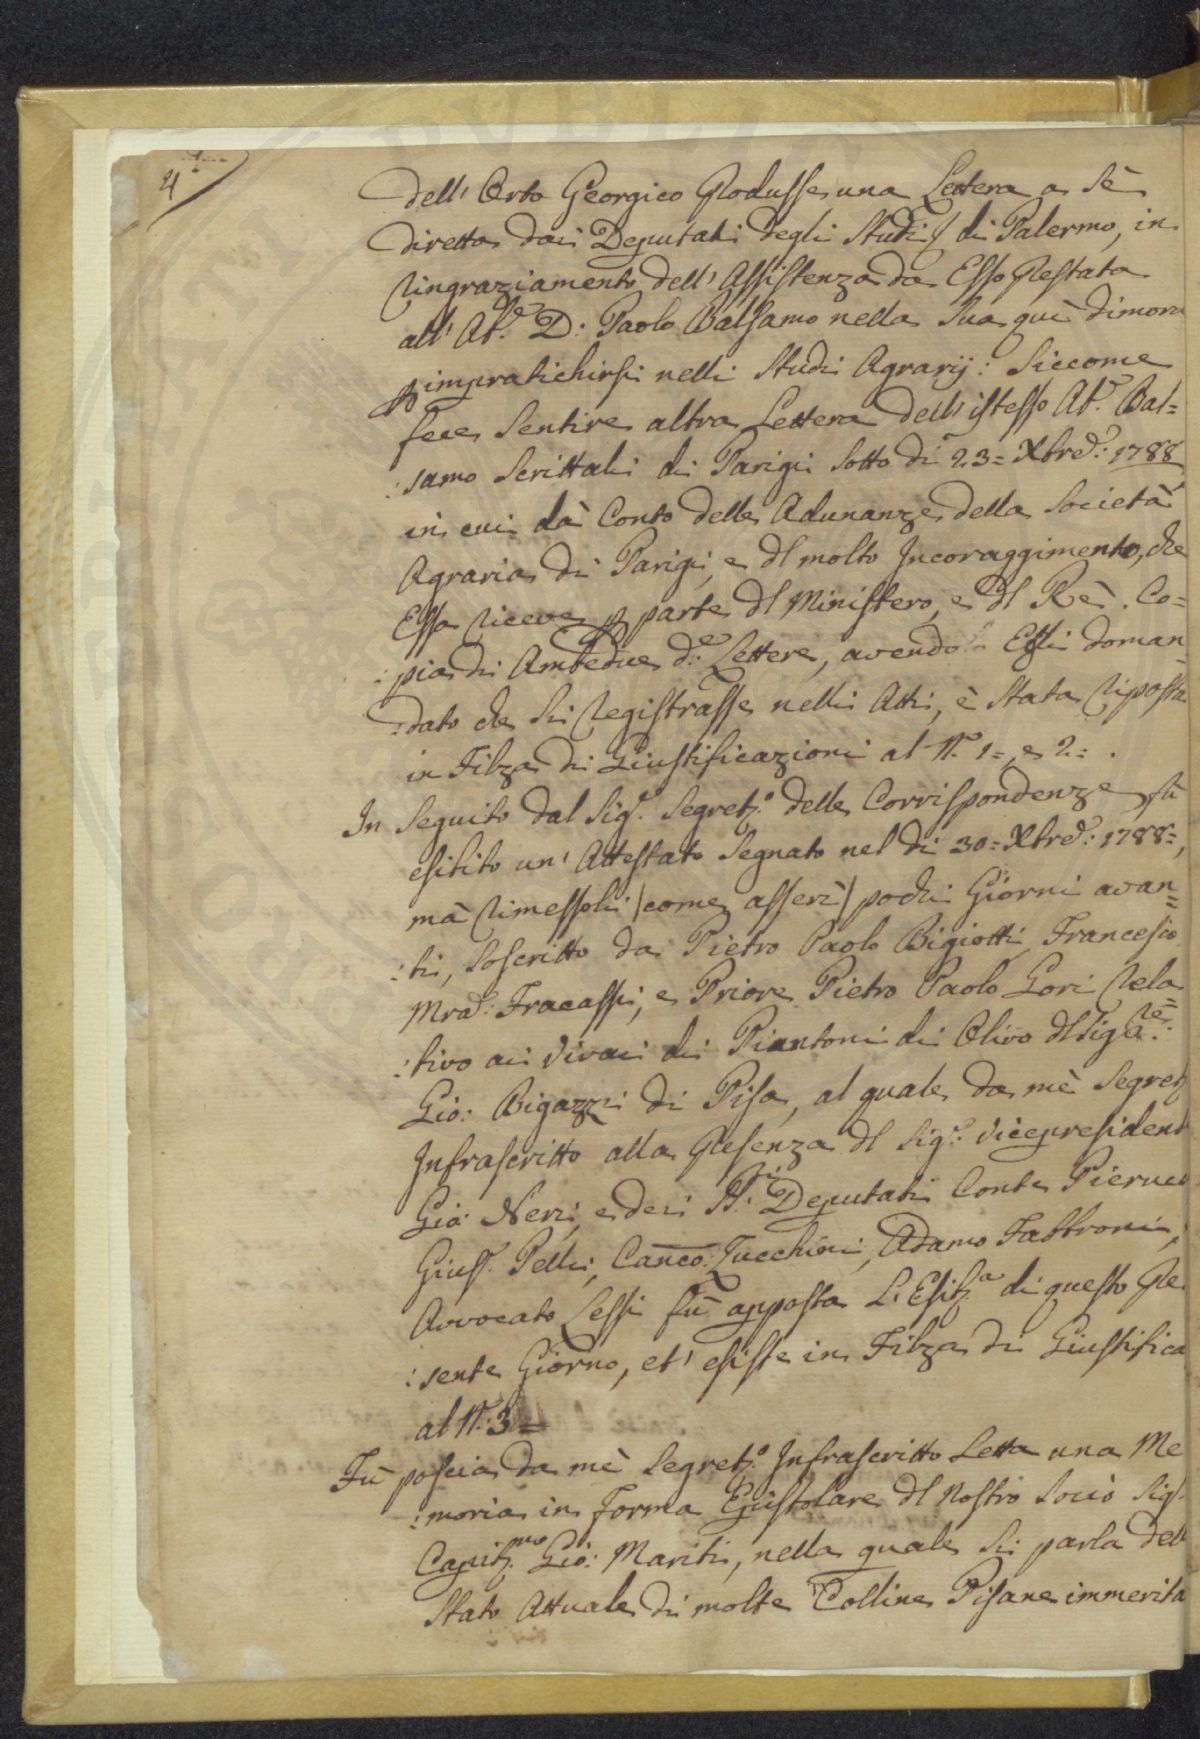 4
dell' Orto Georgico Produsse una Lettera a sè
diretta dai Deputati degli Studi di Palermo, in
ringraziamento dell' Assistenza da Esso Prestata
all' Ab.e D: Paolo Balsamo nella Sua quì dimora
per impratichirsi nelli Studi Agrarij: Siccome
fece Sentire altra Lettera dell' istesso Ab.e Bal=
:samo Scrittali di Parigi sotto dì 23= Xbre: 1788
in cui dà Conto delle Adunanze della Società
Agraria di Parigi, e dl molto Incoraggimento, che
Essa riceve per parte dl Ministero, e dl Rè. Co=
:pia di Ambedue d.e Lettere, avendo Essi doman
:dato che si registrasse nelli Atti, è stata riposta
in Filza di Giustificazioni al N. 1=, e 2=.
In Seguito dal Sig.r Segret.o delle Corrispondenze fù
esibito un' Attestato Segnato nel dì 30= Xbre: 1788=,
mà rimessoli (come asserì) pochi Giorni avan=
:ti, soscritto da Pietro Paolo Bigiotti, Francesco
Mra: Fracassi, e Priore Pietro Paolo Gori rela=
:tivo ai Vivai di Piantoni di Olivo dl Sig.re
Gio: Bigazzi di Pisa, al quale da mè Segret
Infrascritto alla Presenza dl Sig.r Vicepresident
Gio: Neri, e dei SS.ri Deputati Conte Pierucci
Gius. Pelli, Canco: Zucchini, Adamo Fabbroni,
Avvocato Lessi fù apposta L'Esib.a di questo Pre
:sente Giorno, et' esiste in Filza di Giustifica
al N.: 3=
Fù poscia da mè Segret.o Infrascritto Letta una Me
:moria in Forma Epistolare dl Nostro Socio Sig.
Capit.no Gio: Mariti, nella quale si parla dell
Stato Attuale di molte Colline Pisane immerita